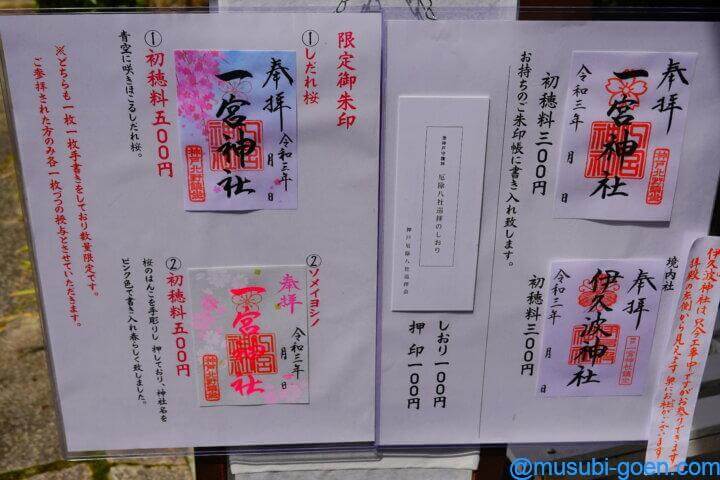 奉拝
一宮神社
令和三年 月 日
神戸北野鎮坐
初穂料三00円
お持ちのご朱印帳に書き入れ致します。
境内社
奉拝
伊久波神社
令和三年 月 日
一宮神社鎮坐
初穂料三00円
伊久波神社は只今工事中ですがお参りできます
拝殿の左側から見えます奥にお社がございます
厄除八社巡拝のしおり
神戸厄除八社巡拝会
しおり 一00円
押印 一00円
限定御朱印
①しだれ桜
奉拝
一宮神社
令和三年 月 日
神戸北野鎮坐
①初穂料五00円
青空に咲きほこるしだれ桜。
②ソメイヨシノ
奉拝
一宮神社
令和三年 月 日
神戸北野鎮坐
②初穂料五00円
桜のはんこを手彫りし押しており、神社名を
ピンク色で書き入れ春らしく致しました。
※どちらも一枚一枚手書きをしており数量限定です。
ご参拝された方のみ各一枚づつの授与とさせていただきます。
@musubi-goen.com